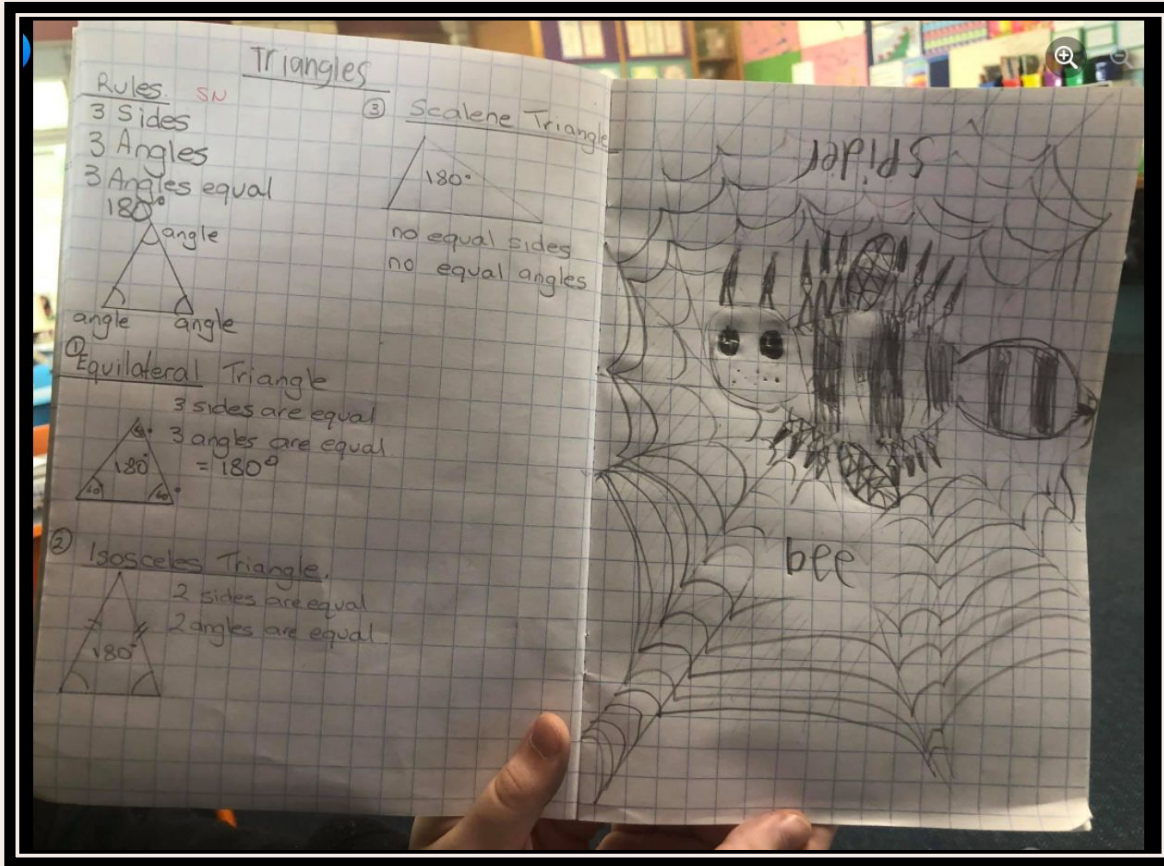 Triangles
Rules. SN
3 Sides
3 Angles
3 Angles equal
180°
angle
angle angle
① Equilateral Triangle
3 sides are equal
3 angles are equal
= 180°
60°
180°
60 60°
② Isosceles Triangle.
2 sides are equal
2 angles are equal
180°
③ Scalene Triangle
180°
no equal sides
no equal angles
Spider
bee